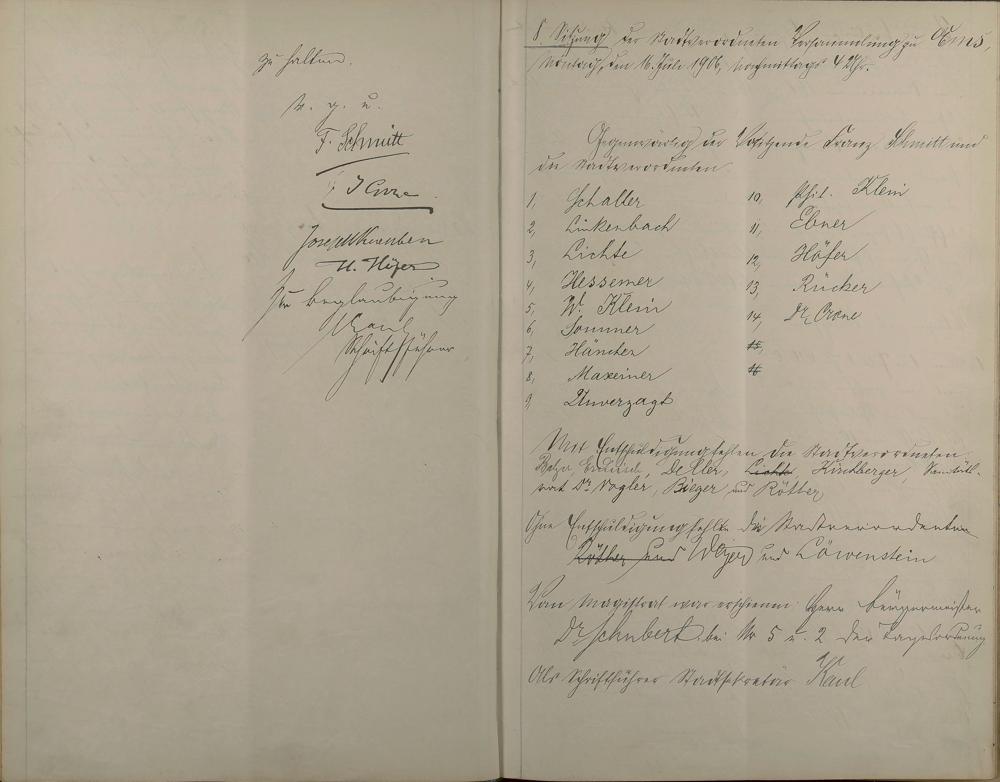 zu halten.
v. g. u.
F. Schmitt
Joseph Kauben
H. Höfer
Zur Beglaubigung
Kaul
Schriftführer
8. Sitzung der Stadtverordneten Versammlung zu Ems,
Montag, den 16. Juli 1906, Nachmittags 4 Uhr.
Gegenwärtig der Vorsitzende Franz Schmitt und
die Stadtverordneten.
1, Schaller
2, Linkenbach
3, Lichte
4, Hessemer
5, W. Klein
6, Sommer
7, Häncher
8, Maxeiner
9, Unverzagt
10, Phil. Klein
11, Ebner
12, Höfer
13, Rücker
14, Dr. Crone
15,
16
Mit Entschuldigung fehlen die Stadtverordneten.
Balzer, Deller, Lichte, Kirchberger, Sanitäts-
rat Dr. Vogler, Bieger und Röther
Ohne Entschuldigung fehlen die Stadtverordneten
Röther und Weyer und Löwenstein
Vom Magistrat war erschienen Herr Bürgermeister
Dr. Schubert bei No 5 u. 2 der Tagesordnung
Als Schriftführer Stadtsekretär Kaul